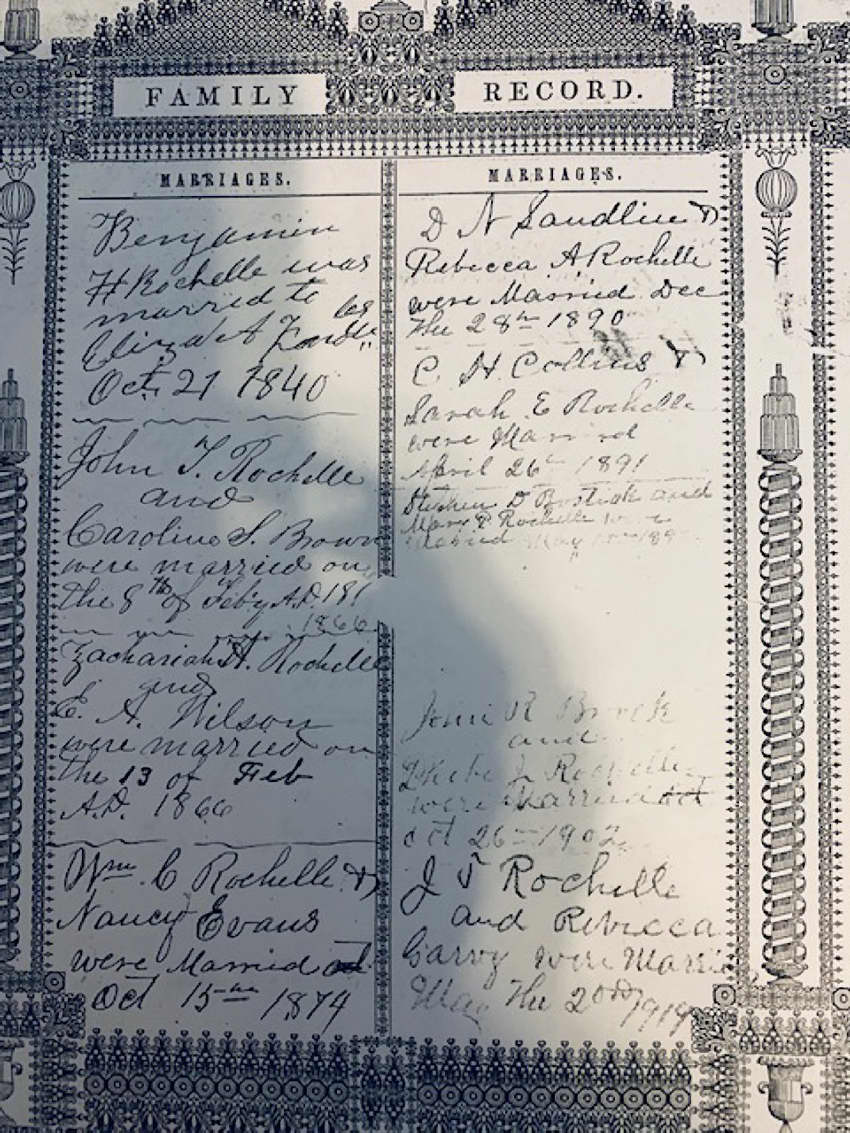 FAMILY RECORD.
MARRIAGES.
Benjamin
H Rochelle was
married to
Eliza A
Oct. 21 1840
John T. Rochelle
and
Caroline S. Brown
were married on
the 8th of Feb'y A.D. 181
1866
Zachariah H. Rochelle
and
E. A. Wilson
were married on
the 13 of Feb
A.D. 1866
Wm. C Rochelle &
Nancy Evans
were Married
Oct 15th 1874
MARRIAGES.
D N Sandlin &
Rebecca A. Rochelle
were Married Dec
the 28th 1890
C H Collins &
Sarah E Rochelle
were Married
April 26th 1891
Stephen D Bostick and
Mary P Rochelle were
Married May 189
John R Brock
and
Phebe J Rochelle
were Married oct
oct 26th 1902
J T Rochelle
and Rebecca
were Marri
May the 2nd 1919